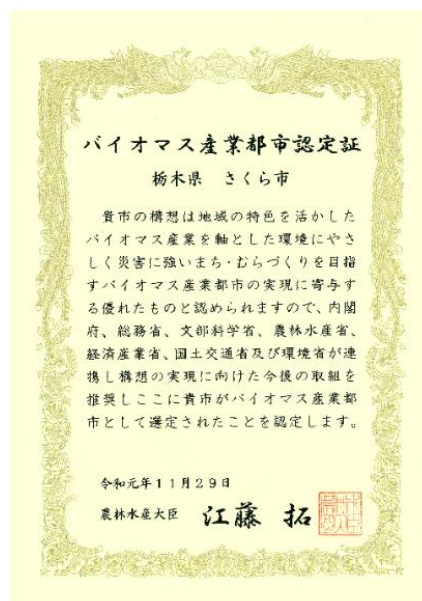 バイオマス産業都市認定証
栃木県　さくら市
貴市の構想は地域の特色を活かした
バイオマス産業を軸とした環境にやさ
しく災害に強いまち・むらづくりを目指
すバイオマス産業都市の実現に寄与す
る優れたものと認められますので、内閣
府、総務省、文部科学省、農林水産省、
経済産業省、国土交通省及び環境省が連
携し構想の実現に向けた今後の取組を
推奨しここに貴市がバイオマス産業都
市として選定されたことを認定します。
令和元年１１月２９日
農林水産大臣　江藤　拓